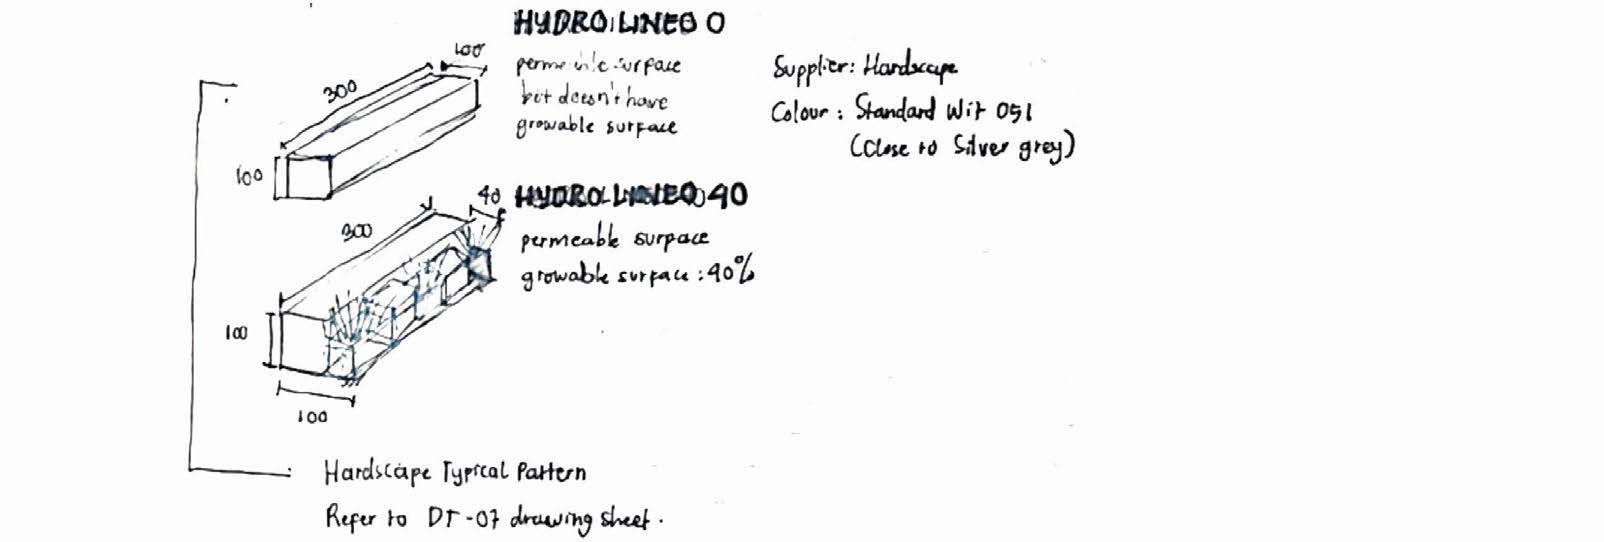 HYDRO LINEO 0
100
permeable surface
but doesn't have
growable surface
Supplier: Hardscape
Colour: Standard Wit 051
(Close to Silver grey)
300
100
HYDRO LINEO 40
40
permeable surface
growable surface: 40%
300
100
100
Hardscape Typical Pattern
Refer to DT-07 drawing sheet.